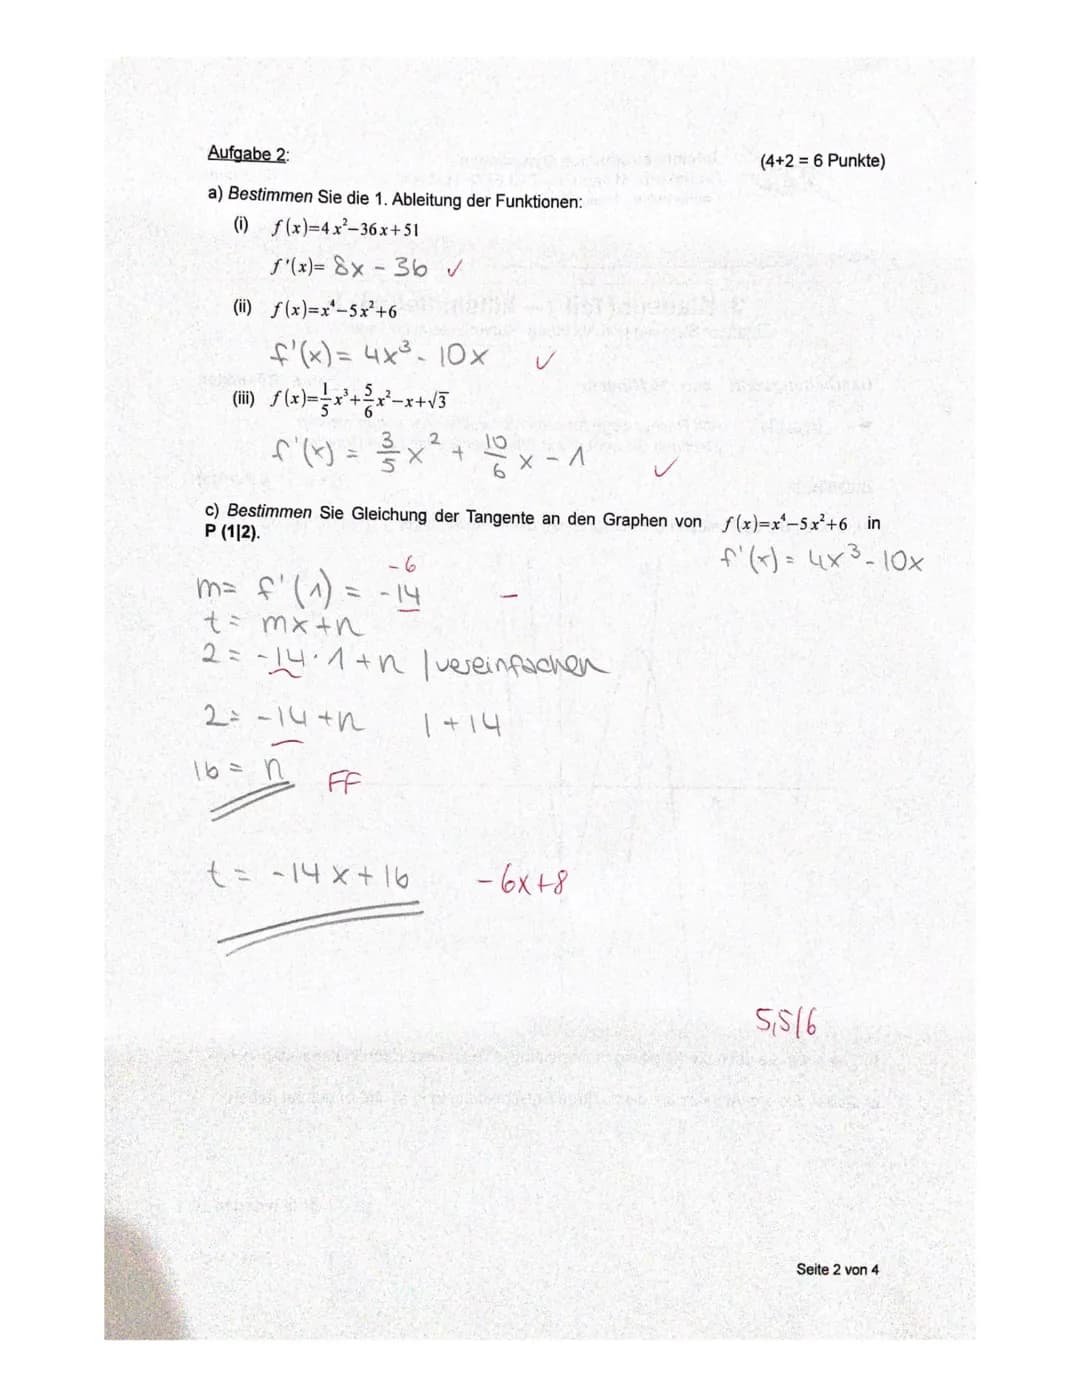 Aufgabe 2:
(4+2 = 6 Punkte)
a) Bestimmen Sie die 1. Ableitung der Funktionen:
(i) f(x)=4x²−36x+51
f'(x)= 8x - 36 ✓
(ii) f(x)=x⁴−5x²+6
f'(x) = 4x³ - 10x ✓
(iii) f(x)=1/5x³+5/6x²−x+√3
f'(x) = 3/5 x² + 10/6 x - 1 ✓
c) Bestimmen Sie Gleichung der Tangente an den Graphen von f(x)=x⁴−5x²+6 in
P (1|2).
f'(x) = 4x³ - 10x
-6
m= f'(1) = -14 –
t = mx+n
2 = -14·1+n | vereinfachen
2 = -14+n | +14
16 = n FF
t = -14x+16 -6x+8
5,5/6
Seite 2 von 4